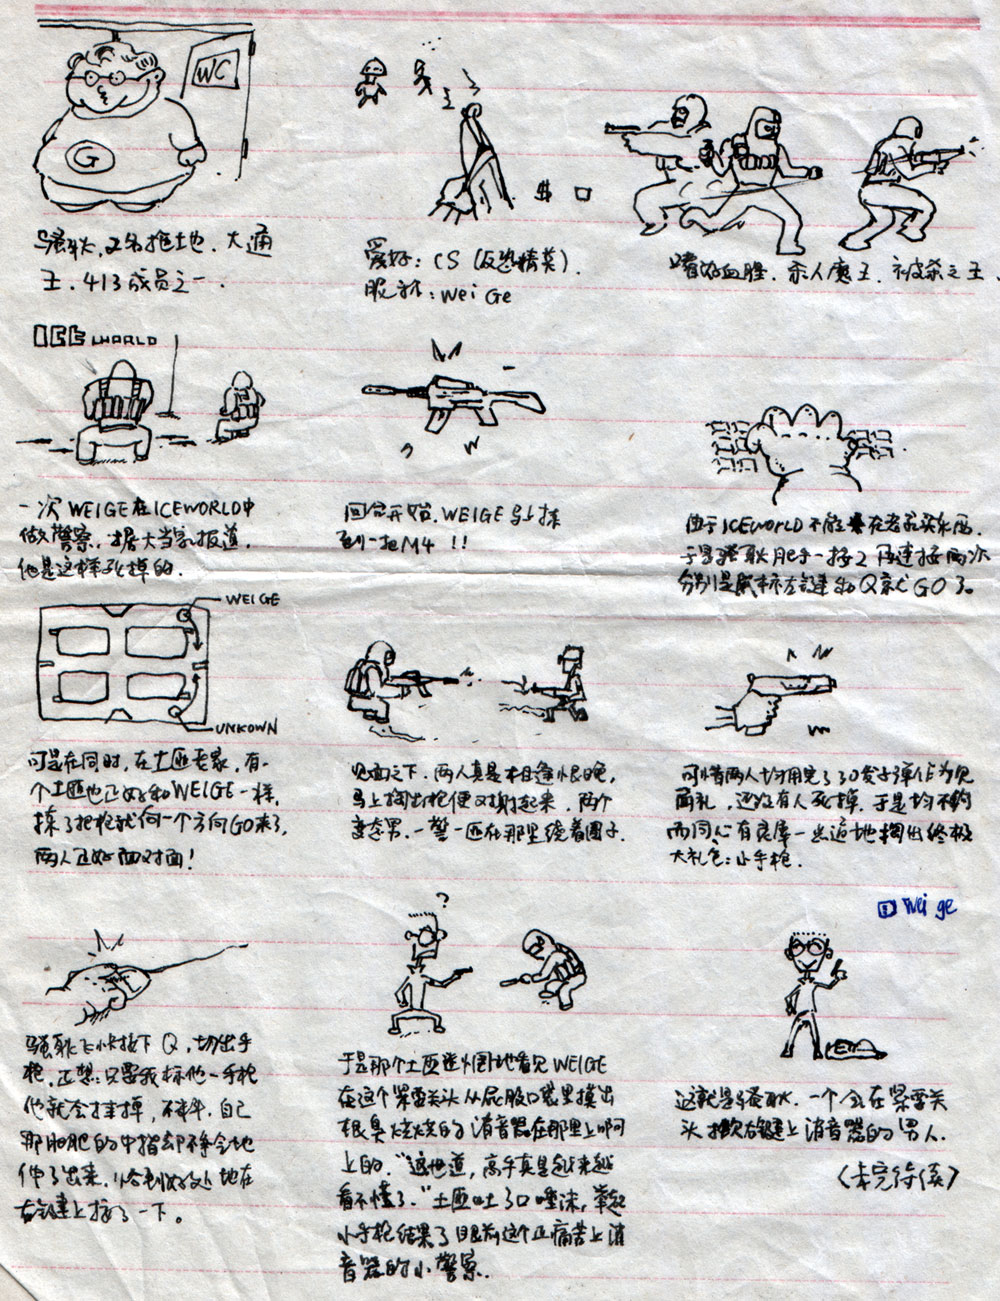 WC
G
骚耿，又名拖地．大通
王．413成员之一．
$
爱好：CS（反恐精英）．
昵称：Wei Ge
嗜好血腥．杀人魔王．被杀之王
ICE WORLD
一次WEIGE在ICEWORLD中
做警察，据大当家报道，
他是这样死掉的．
回合开始，WEIGE马上捡
到一把M4！！
由于ICEWORLD不能在老家买东西，
于是骚耿肥手一按2再连按两次
分别是鼠标左键和Q就GO了。
WEIGE
UNKOWN
可是在同时，在土匪老家，有一
个土匪也正好和WEIGE一样，
捡了把枪就向一个方向GO来了，
两人正好面对面！
见面之下．两人真是相逢恨晚，
马上掏出枪便对射起来．两个
变态男．一警一匪在那里绕着圈子．
可惜两人均用完了30发子弹作为见
面礼，还没有人死掉．于是均不约
而同心有灵犀一点通地掏出终极
大礼包：小手枪．
Wei ge
骚耿飞快按下Q，切出手
枪，正想：只要我标他一手枪
他就会挂掉，不料，自己
那肥肥的中指却不争气地
伸了出来，恰到好处地在
右键上按了一下。
?
于是那个土匪迷惘地看见WEIGE
在这个紧要关头从屁股口袋里摸出
根臭烘烘的消音器在那里上啊
上的．"这世道，高手真是越来越
看不懂了．"土匪吐了口唾沫，举起
小手枪结果了眼前这个正痛苦上消
音器的小警察．
这就是骚耿．一个会在紧要关
头揿右键上消音器的男人．
（未完待续）